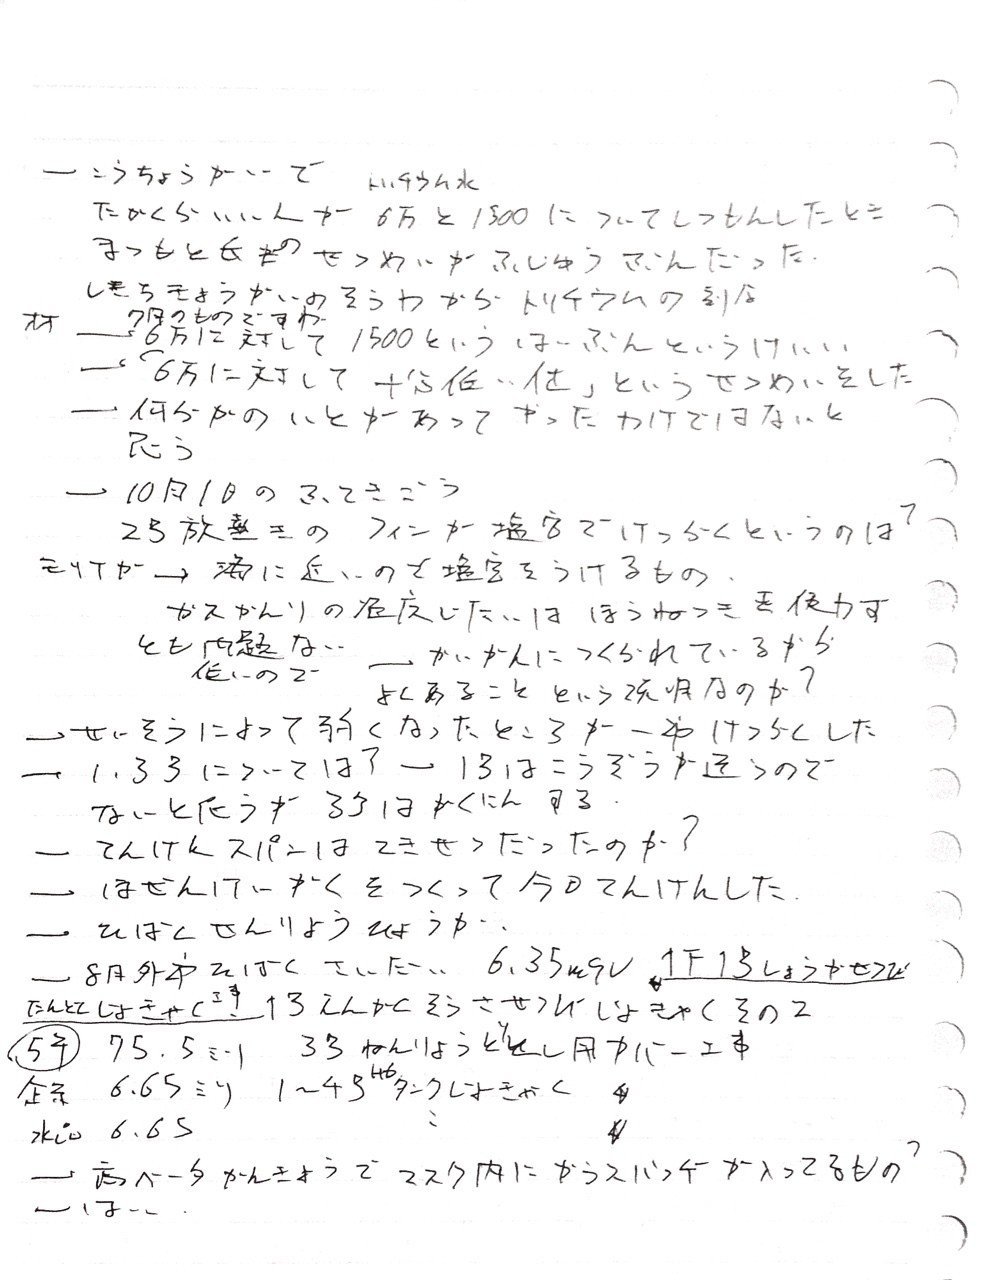 ー こうちょうかいで トリチウム水
たかくらいいんが 6万と1500についてしつもんしたとき
まつもと氏の せつめいが ふじゅうぶんだった.
しきちきょうかいの そうわから トリチウムの
7月のものですか
ー 6万に対して 1500という
ー「6万に対して 十分低い値」という せつめいをした
ー 何らかの いとがあって やったわけではないと
思う
ー 10月1日の ふてきごう
2号放熱きの フィンが塩害でけつらくというのは?
モリTか → 海に近いので塩害をうけるもの.
ガスかんりの温度じたいは ほうねつきを使わず
とも問題ない
低いので ー かいがんにつくられているから
よくあること という説明なのか?
ー せいそうによって弱くなったところが一部けつらくした
ー 1.3号については? ー 1号はこうぞうが違うので
ないと思うが 3号はかくにんする.
ー てんけんスパンは てきせつだったのか?
ー ほぜんけいかくをつくって今回てんけんした.
ー ひばくせんりょうひょうか.
ー 8月外部ひばく さいだい 6.35mSv 1F1号しょうかせつび
じょきゃく工事 1号えんかくそうさせつび じょきゃくその2
5年 75.5ミリ 3号ねんりょうとりだし用カバー工事
企系 6.65ミリ 1〜4号 タンクじょきゃく 〃
6.65 〃 〃
ー 高ベータかんきょうで マスク内にガラスバッチが入ってるもの?
ー はい.